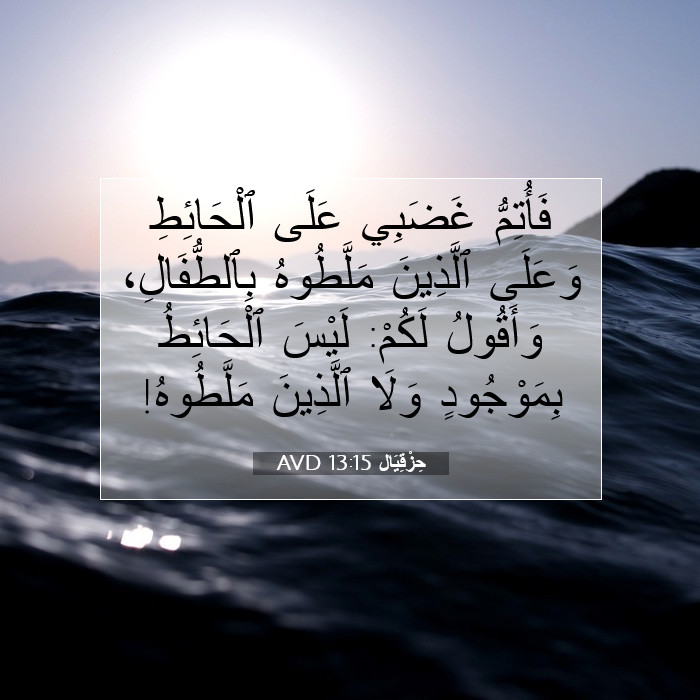 فَأُتِمُّ غَضَبِي عَلَى ٱلْحَائِطِ
وَعَلَى ٱلَّذِينَ مَلَّطُوهُ بِٱلطُّفَالِ،
وَأَقُولُ لَكُمْ: لَيْسَ ٱلْحَائِطُ
بِمَوْجُودٍ وَلَا ٱلَّذِينَ مَلَّطُوهُ!
حِزْقِيَال 13:15 AVD